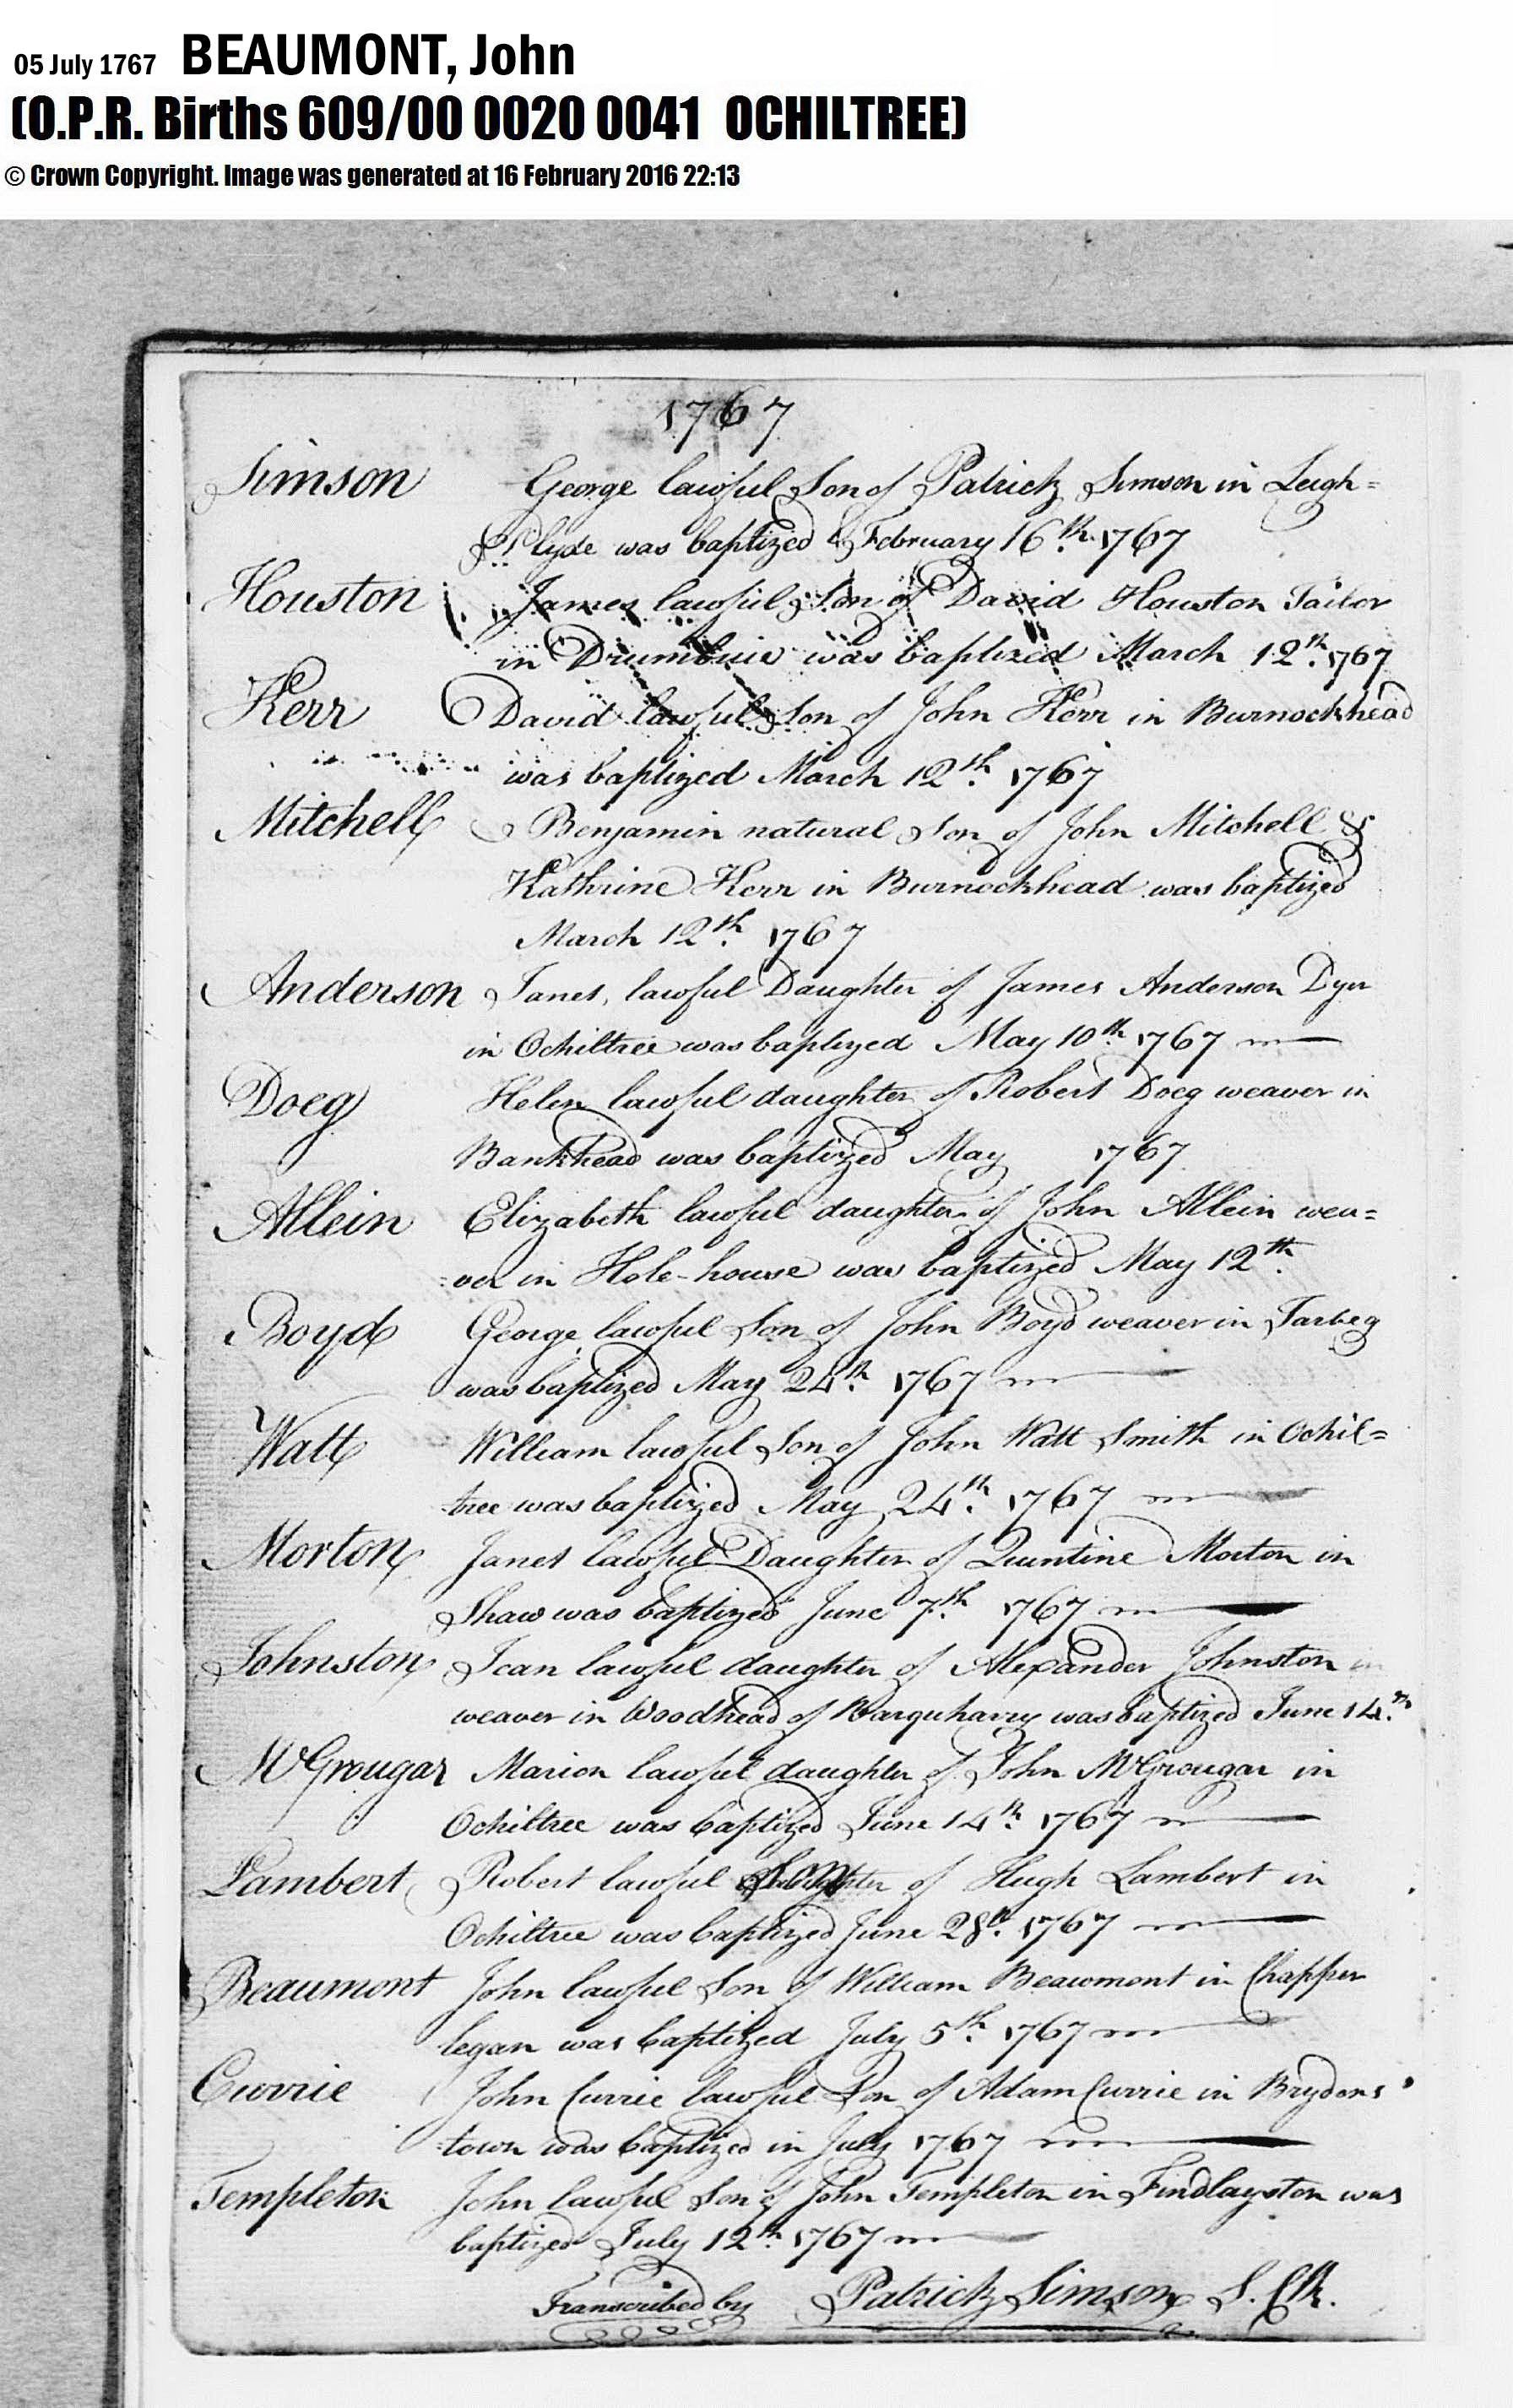 05 July 1767 BEAUMONT, John
(O.P.R. Births 609/00 0020 0041 OCHILTREE)
© Crown Copyright. Image was generated at 16 February 2016 22:13
1767
Simson George lawful Son of Patrick Simson in Leigh=
Clyde was baptized February 16th. 1767
Houston James lawful Son of David Houston Tailor
in Drumbuie was baptized March 12th. 1767
Kerr David lawful Son of John Kerr in Burnockhead
was baptized March 12th. 1767
Mitchell Benjamin natural Son of John Mitchell &
Kathrine Kerr in Burnockhead was baptized
March 12th. 1767
Anderson Janet, lawful Daughter of James Anderson Dyer
in Ochiltree was baptized May 10th. 1767
Doeg Helen lawful daughter of Robert Doeg weaver in
Bankhead was baptized May 1767
Allein Elizabeth lawful daughter of John Allein wea=
ver in Hole-house was baptized May 12th.
Boyd George lawful Son of John Boyd weaver in Tarbeg
was baptized May 24th. 1767
Watt William lawful Son of John Watt Smith in Ochil=
tree was baptized May 24th. 1767
Morton Janet lawful Daughter of Quintine Morton in
Shaw was baptized June 7th. 1767
Johnston Jean lawful daughter of Alexander Johnston in
weaver in Woodhead of Barquharry was baptized June 14.th
McGrougar Marion lawful daughter of John McGrougar in
Ochiltree was baptized June 14th. 1767
Lambert Robert lawful Son of Hugh Lambert in
Ochiltree was baptized June 28th. 1767
Beaumont John lawful Son of William Beaumont in Chapper
legan was baptized July 5th. 1767
Currie John Currie lawful Son of Adam Currie in Brydons
town was baptized in July 1767
Templeton John lawful Son of John Templeton in Findlayston was
baptized July 12th. 1767
Transcribed by Patrick Simson S. Clk.